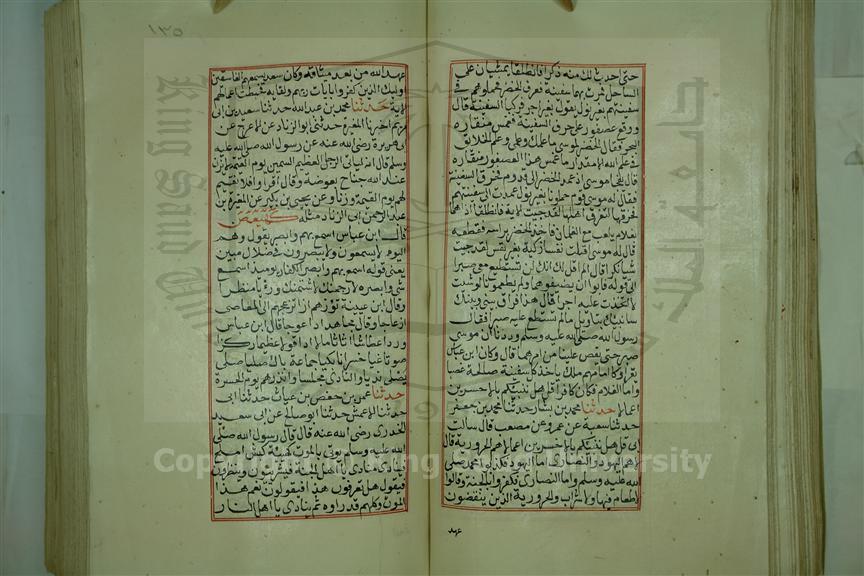 حتى احدث لك منه ذكرا فانطلقا يمشيان على
الساحل فمرت بهما سفينة فعرف الخضر فحملوهم في
سفينتهم بغير نول يقول بغير اجر فركبا السفينة قال
ووقع عصفور على حرف السفينة فغمس منقاره
البحر فقال الخضر لموسى ما علمك وعلمي وعلم الخلائق
في علم الله الا مقدار ما غمس هذا العصفور منقاره
قال فلم يفجا موسى اذ عمد الخضر الى قدوم فخرق السفينة
فقال له موسى قوم حملونا بغير نول عمدت الى سفينتهم
فخرقتها لتغرق اهلها لقد جيت الاية فانطلقا اذ هما
بغلام يلعب مع الغلمان فاخذ الخضر براسه فقطعه
قال له موسى اقتلت نفسا زكية بغير نفس لقد جيت
شيا نكرا قال الم اقل لك انك لن تستطيع معي صبرا
الى قوله فابوا ان يضيفوهما
لاتخذت عليه اجرا قال هذا فراق بيني وبينك
سانبئك بتاويل ما لم تستطع عليه صبرا فقال
رسول الله صلى الله عليه وسلم وددنا ان موسى
صبر حتى يقص علينا من امرهما قال وكان ابن عباس
يقرا وكان امامهم ملك ياخذ كل سفينة صالحة غصبا
واما الغلام فكان كافرا قل هل ننبئكم بالاخسرين
اعمالا حدثنا محمد بن بشار حدثنا محمد بن جعفر
حدثنا شعبة عن عمرو عن مصعب قال سالت
ابي قل هل ننبئكم بالاخسرين اعمالا هم الحرورية قال
لا هم اليهود والنصارى اما اليهود فكذبوا محمد صلى
الله عليه وسلم واما النصارى فكفروا بالجنة وقالوا
لا طعام فيها ولا شراب والحرورية الذين ينقضون
عهد
١٣٥
عهد الله من بعد ميثاقه وكان سعد يسميهم الفاسقين
اوليك الذين كفروا بايات ربهم ولقايه فحبطت اعمالهم
الاية حدثنا محمد بن عبد الله حدثنا سعيد بن ابي
مريم اخبرنا المغيرة حدثني ابو الزناد عن الاعرج عن
ابي هريرة رضي الله عنه عن رسول الله صلى الله عليه
وسلم قال انه لياتي الرجل العظيم السمين يوم القيمة لا يزن
عند الله جناح بعوضة وقال اقراوا فلا نقيم
لهم يوم القيمة وزنا وعن يحيى بن بكير عن المغيرة بن
عبد الرحمن عن ابي الزناد مثله كهيعص
قال ابن عباس اسمع بهم وابصر يقول وهم
اليوم لا يسمعون ولا يبصرون في ضلال مبين
يعني قوله اسمع بهم وابصر الكفار يومئذ اسمع
شي وابصره لارجمنك لاشتمنك ورئيا منظرا
وقال ابن عيينة تؤزهم ازا تزعجهم الى المعاصي
ازعاجا وقال مجاهد ادا عوجا قال ابن عباس
وردا عطاشا اثاثا مالا ادا قولا عظيما ركزا
صوتا غيا خسرانا بكيا جماعة باك صليا صلي
يصلى نديا والنادي مجلسا وانذرهم يوم الحسرة
حدثنا عمر بن حفص بن غياث حدثنا ابي
حدثنا الاعمش حدثنا ابو صالح عن ابي سعيد
الخدري رضي الله عنه قال قال رسول الله صلى
الله عليه وسلم يوتى بالموت كهيئة كبش املح
فينادي مناد يا اهل الجنة فيشرئبون وينظرون
فيقول هل تعرفون هذا فيقولون نعم هذا
الموت وكلهم قد راوه ثم ينادي يا اهل النار
جامعة الملك سعود
King Saud University
Copyright © King Saud University